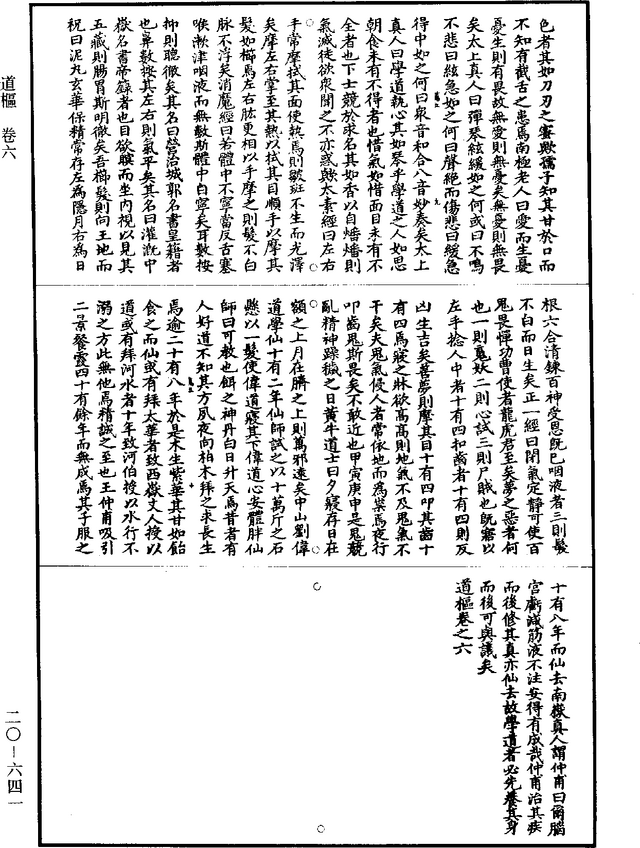 色者其如刀刃之蜜歟孺子知其甘於口而
不知有截舌之患焉南極老人曰愛而生憂
憂生則有畏故無愛則無憂矣無憂則無畏
矣太上真人曰彈琴絃緩如之何或曰不鳴
不悲曰絃急如之何曰聲絕而傷悲曰緩急
得中如之何曰眾音和合八音妙奏矣太上
真人曰學道執心其如琴乎學道之人如思
朝食未有不得者也惜氣如惜面目未有不
全者也下士競於求名其如香以自燔燔則
氣滅徒欲眾聞之不亦惑歟太素經曰左右
手常摩拭其面使熱焉則皺斑不生而光澤
矣摩左右掌至其熱以拭其目順手以摩其
髮如櫛焉左右肱更相以手摩之則髮不白
脉不浮矣消魔經曰若體中不寧當反舌塞
喉漱津咽液而無數斯體中自寧矣耳數按
抑則聰徹矣其名曰營治城郭名書皇籍者
也鼻數按其左右則氣平矣其名曰灌溉中
嶽名書帝籙者也目欲瞑而坐內視以見其
五藏則腸胃斯明徹矣吾櫛髮則向王地而
祝曰泥丸玄華保精常存左為隱月右為日
根六合清鍊百神受恩既已咽液者三則髮
不白而日生矣正一經曰閉氣定靜可使百
鬼畏憚功曹使者龍虎君至矣夢之惡者何
也一則魂妖二則心試三則尸賊也既寤以
左手捻人中者十有四和齒者十有四則反
凶生吉矣善夢則摩其目十有四叩其齒十
有四焉寢之牀欲高高則地氣不及鬼氣不
干矣夫鬼氣侵人者常依地而為祟焉夜行
叩齒鬼斯畏矣不敢近也甲寅庚申是鬼競
亂精神躁穢之日黃牛道士曰夕寢存日在
額之上月在臍之上則萬邪遠矣中山劉偉
道學仙十有二年仙師試之以十萬斤之石
懸以一髮使偉道寢其下偉道心安體胖仙
師曰可教也餌之神丹白日升天焉昔者有
人好道不知其方夙夜向柏木拜之求長生
焉逾二十有八年於是木生紫華其甘如飴
食之而仙或有拜太華者致西嶽丈人授以
道或有拜河水者十年致河伯授以水行不
溺之方此無他焉精誠之至也王仲甫吸引
二景餐霞四十有餘年而無成焉其子服之
十有八年而仙去南嶽真人謂仲甫曰爾腦
宮虧減筋液不注安得有成哉仲甫治其疾
而後修其真亦仙去故學道者必先養其身
而後可與議矣
道樞卷之六
道樞 卷六
二〇—六四一